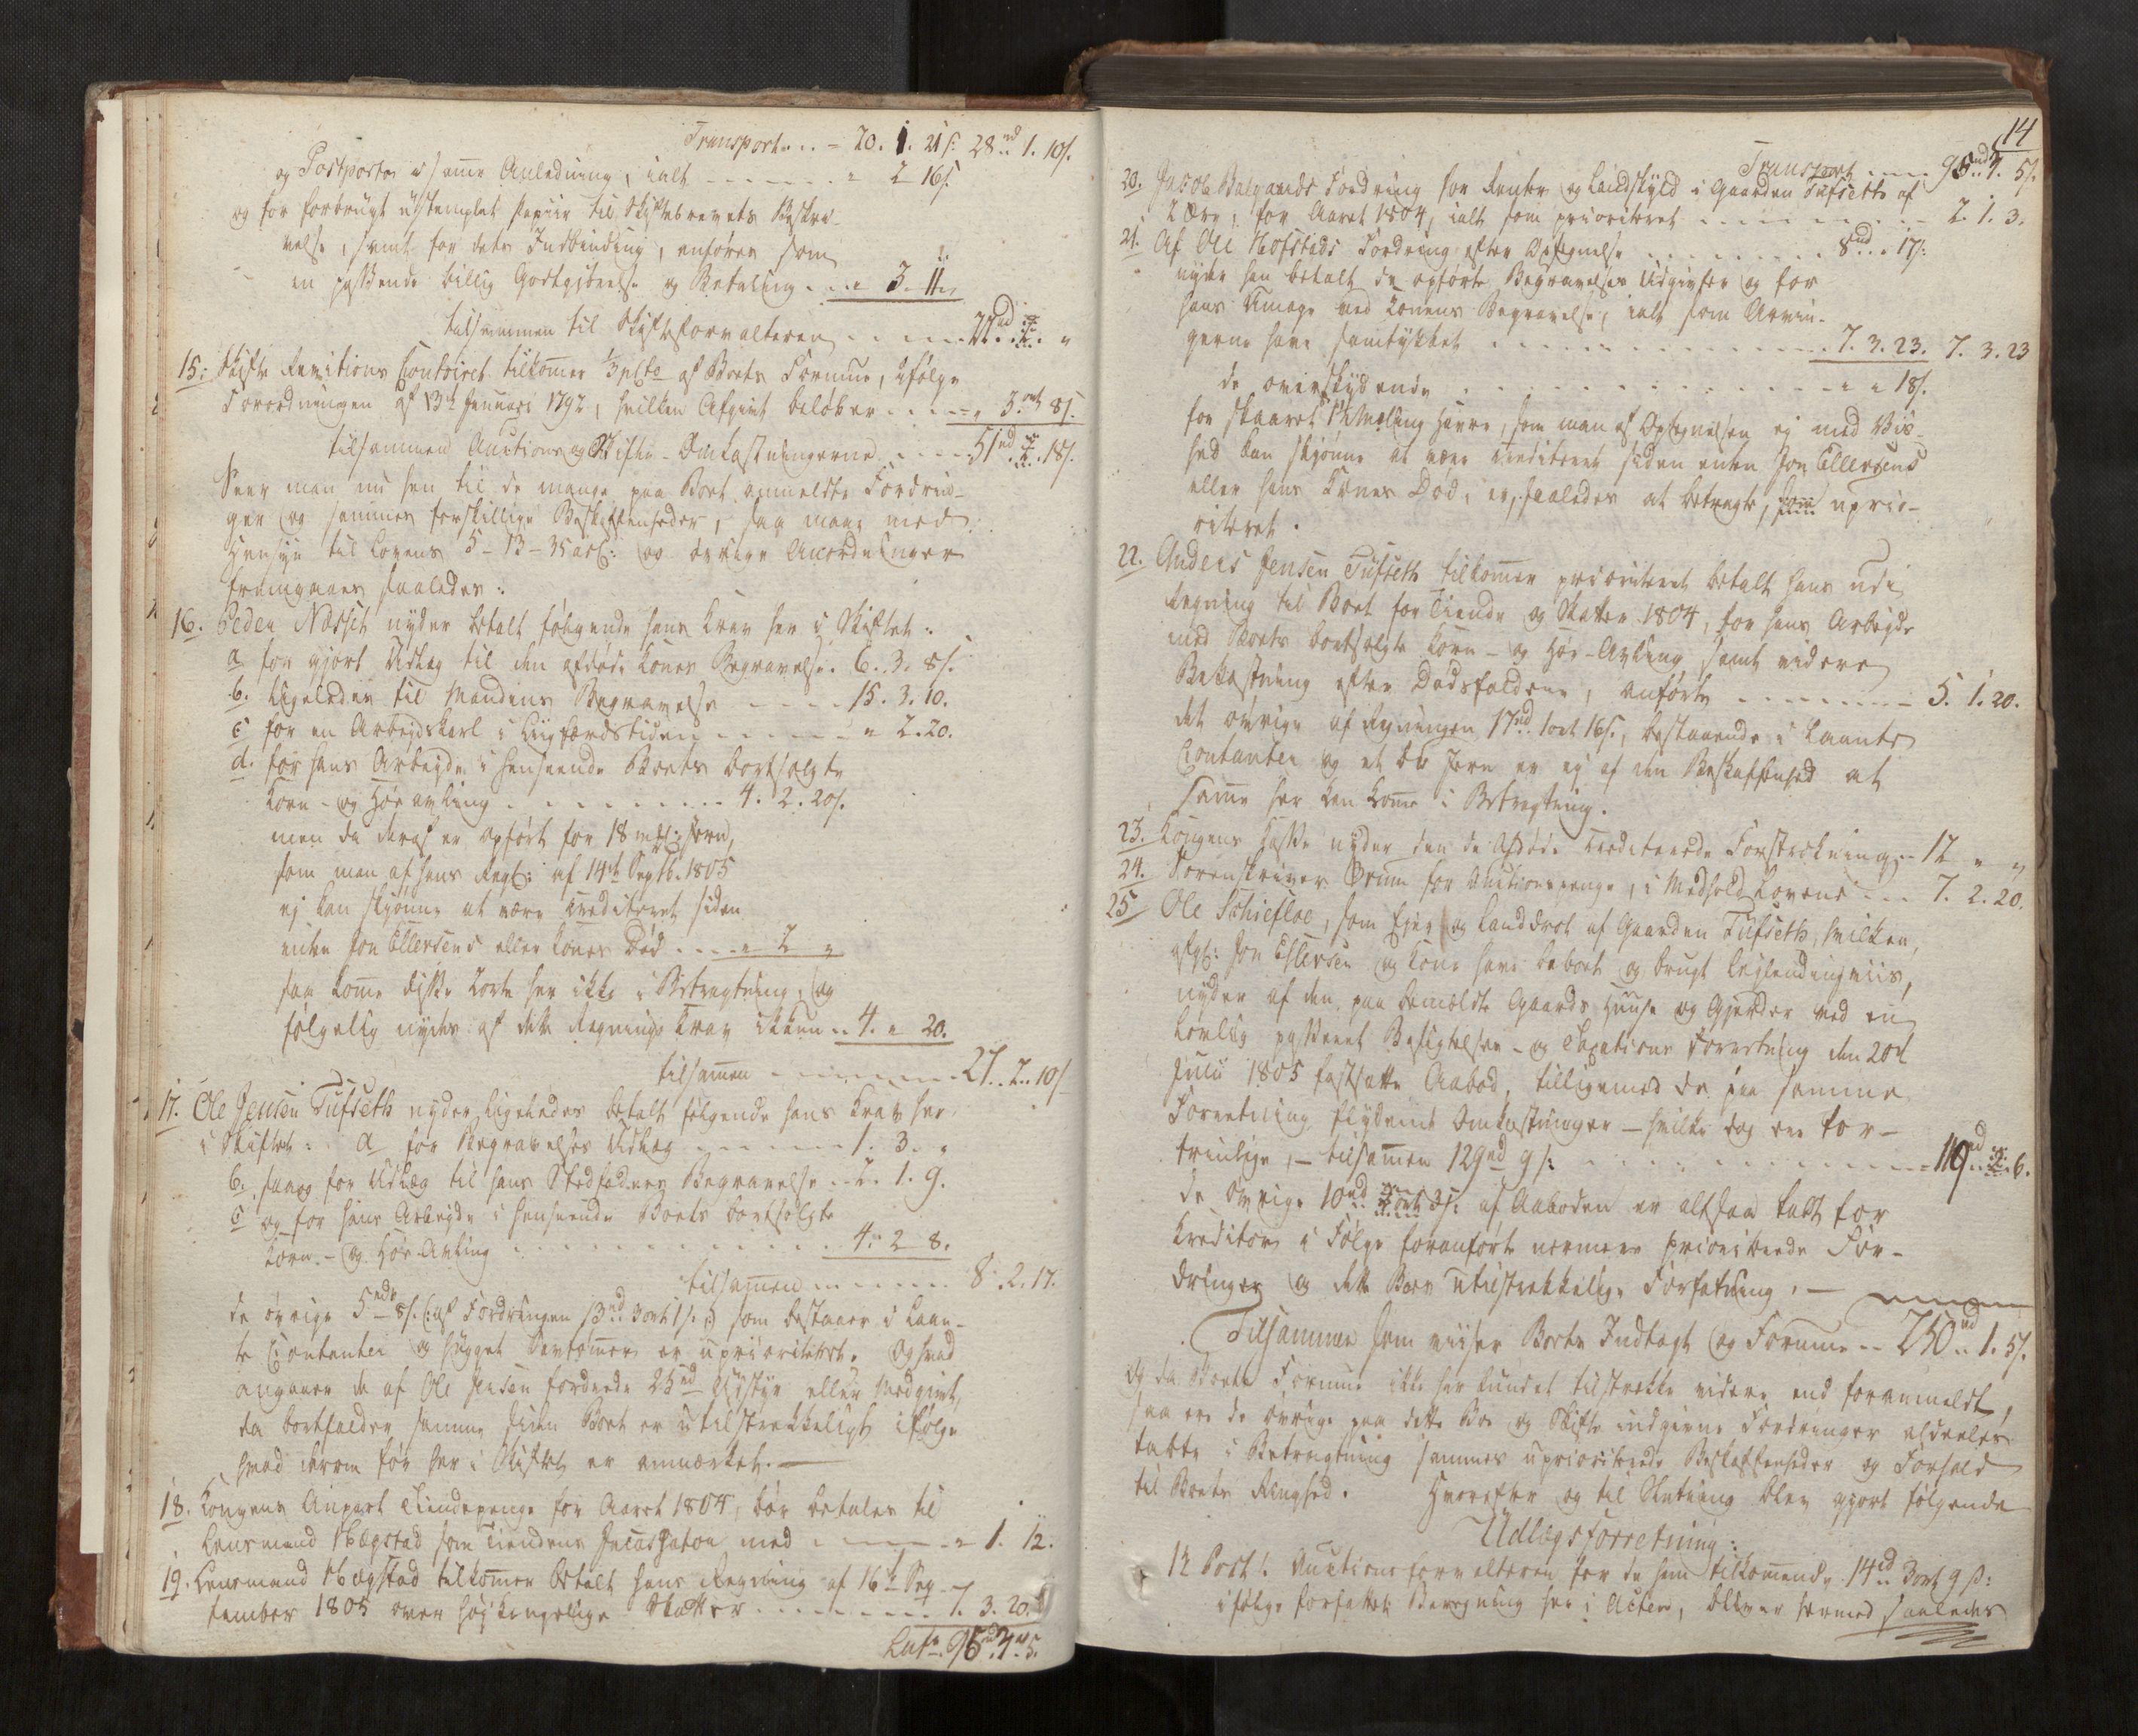 Transport... = 20. 1. 21 s: 28 rd 1. 10 s.
og Postporto i samme Anledning, ialt - - - - - - " 2 16 s.
og for forbrugt ustemplet Papiir til Skiftebrevets Beskri-
velse, samt for dets Indbinding, anføres som
en passende billig Godtgjørelse og Betaling - - - 3. 11 "
tilsammen til Skifteforvalteren
15: Skifte Revitions Contoiret tilkommer 1/3 pCto af Boets Formue, ifølge
Forordningen af 13de Januari 1792, hvilken Afgivt beløber - - - - " 3 ort 8 s.
tilsammen Auctions og Skifte-Omkostningerne - - - - 51 rd 18 s.
Seer man nu hen til de mange paa Boet anmeldte Fordrin-
ger og sammes forskillige Beskaffenheder, saa maae med
Hensyn til Lovens 5-13-35 arl: og øvrige Anordninger
fremgaaes saaledes:
16. Peder Næsset nyder betalt følgende hans Krav her i Skiftet:
a for gjort Udlæg til den afdøde Kones Begravelse. 6. 3. 8 s.
b. ligeledes til Mandens Begravelse - - - - 15. 3. 10.
c for en Arbeydskarl i Liigfærdstiden - - - - - " 2. 20.
d. for hans Arbeyde i henseende Boets bortsolgte
Korn- og Høe avling - - - - - - - - - 4. 2. 20 s.
men da deraf er opført for 18 mrk: Jern,
som man af hans Regl: af 14de Septb. 1805
ej kan skjønne at være crediteret siden
enten Jon Ellersens eller Kones Død - - - " 2 "
saa kome disse 2 ort her ikke i Betragtning, og
følgelig nydes af dette Regnings Krav ikkun .. 4. " 20.
tilsamen - - - - - - - 27. 2. 10 s
17. Ole Jensen Tufseth nyder ligeledes betalt følgende hans Krav her
i Skiftet: a for Begravelses Udlæg - - - - - - 1. 3. "
b. saaog for Udlæg til hans Stedfaders Begravelse - - 2. 1. 9.
c og for hans Arbeyde i henseende Boets bortsolgte
Korn- og Høe-Avling - - - - - - - - - - - 4. 2 8.
tilsamen - - - - - 8. 2. 17.
de øvrige 5 rd - 8 s. (: af Fordringen 13 rd 3 ort 1 s. :) som bestaaer i Laan-
te Contanter og hugget Sautømmer er uprioriteret. Og hvad
angaaer de af Ole Jensen fordrede 25 rd Udstyr eller Medgivt,
da bortfalder samme siden Boet er utilstrækkeligt ifølge
hvad derom før her i Skiftet er anmærket. —
18. Kongens Anpart Tiendepenge for Aaret 1804, bør betales til
Lensmand Hagstad som Tiendens Incassator med - - - - " 1. 12.
19. Lensmand Hagstad tilkommer betalt hans Regning af 16de Sep-
tember 1805 over høj kongelige Skatter - - - - - - - - 7. 3. 20.
Lats. 95 rd 5.
14
Transport - - - - 95 rd 5 s.
20. Jacob Balgaards Fordring for Renter og Landskyld i Gaarden Tufseth af
2 Ører, for Aaret 1804, ialt som prioriteret - - - - - - - - - 2. 1. 3.
21. Af Ole Hofstads Fordring efter Optegnelse - - - - - - - - 8 rd " 17 s:
nyder han betalt de opførte Begravelses Udgivter og for
hans Umage ved Konens Begravelse, ialt som Arvin-
gerne have samtykket - - - - - - - - - - - 7. 3. 23. 7. 3. 23
de overskydende - - - - - - - - - - - - " " 18 s.
for skaaret 1½ Mæling Havre, som man af Optegnelsen ej med Vis-
hed kan skjønne at være crediteret siden enten Jon Ellersens
eller hans Kones Død, er saaledes at betragte, som uprio-
riteret.
22. Anders Jensen Tufseth tilkommer prioriteret betalt hans udi
Regning til Boet for Tiende og Skatter 1804, for hans Arbeyde
med Boets bortsolgte Korn- og Høe-Avling samt videre
Bekostning efter Dødsfaldene, anførte - - - - - - - 5. 1. 20.
det øvrige af Regningen 17 rd 1 ort 16 s., bestaaende i Laante
Contanter og et Jern er ej af den Beskaffenhed at
samme her kan komme i Betragtning.
23. Kongens Kasse nyder den de Afdøde crediterede Forstrekning - - 12 " "
24. Sorenskriver Brun for Auctionspenge, i Medhold Lovens - - - 7. 2. 20.
25 Ole Schiefloe, som Ejer og Landdrot af Gaarden Tufseth, hvilken,
afg: Jon Ellersen og Kone have beboet og brugt leylendingviis,
nyder af den paa bemeldte Gaards Huuse og Gjerder ved en
Lovlig passeret Besigtelses- og Taxations Forretning den 20de
Junii 1805 fastsatte Aabod, tilligemed de paa samme
Forretning flydende Omkostninger — hvilke dog ere for-
trinlige, — tilsamen 129 rd 9 s: - - - - - - - - - - - - 119 rd 6.
de øvrige 10 rd ort 3 s: af Aaboden er altsaa tabt for
Kreditor i Følge foranførte nermere prioriterede For-
dringer og dette Boes utilstrækkelige Forfatning. —
Tilsammen som viiser Boets Indtægt og Formue - - 250 rd 1. 5 s.
Og da Boets Formue ikke har kundet tilstrække videre end foranmeldt,
saa ere de øvrige paa dette Boe og Skifte indgivne Fordringer aldeeles
tabte i Betragtning sammes uprioriterede Beskaffenheder og Forhold
til Boets Ringhed. Hvorefter og til Slutning blev gjort følgende
Udlægsforretning:
12 Post: Auctionsforvalteren for de ham tilkommende 14 rd 3 ort 9 s:
ifølge forfattet Beregning her i Acten, bliver hermed saaledes